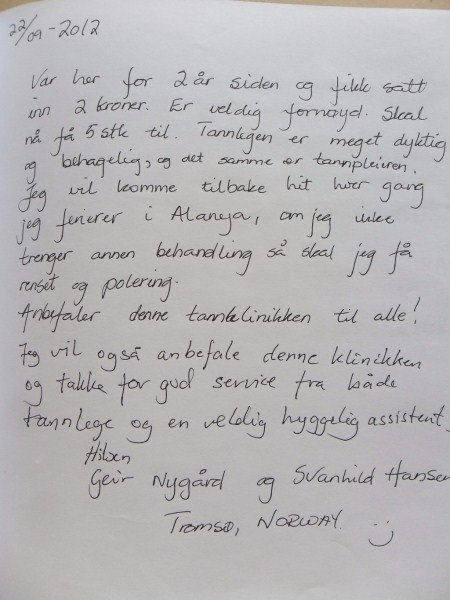 22/09-2012
Var her for 2 år siden og fikk satt
inn 2 kroner. Er veldig fornøyd. Skal
nå få 5 stk til. Tannlegen er meget dyktig
og behagelig, og det samme er tannpleieren.
Jeg vil komme tilbake hit hver gang
jeg ferierer i Alanya, om jeg ikke
trenger annen behandling så skal jeg få
renset og polering.
Anbefaler denne tannklinikken til alle!
Jeg vil også anbefale denne klinikken
og takke for god service fra både
tannlege og en veldig hyggelig assistent.
Hilsen
Geir Nygård og Svanhild Hansen
Tromsø, NORWAY. :)